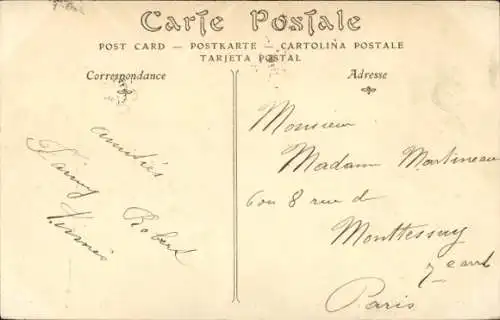 Carte Postale
POST CARD — POSTKARTE — CARTOLIÑA POSTALE
TARJETA POSTAL
Correspondance
Adresse
amitiés
Fanny Robert
Monsieur
Madam Martineau
6 ou 8 rue de
Monttessuy
7e arrt
Paris